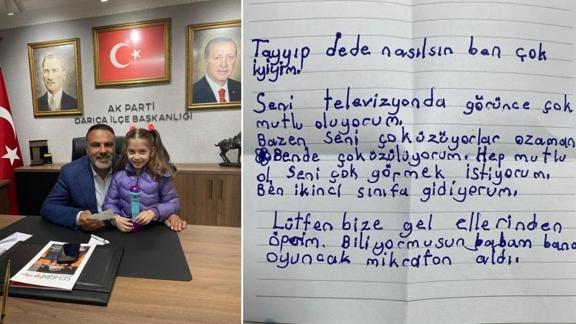 AK PARTİ
DARICA İLÇE BAŞKANLIĞI
Tayyip dede nasılsın ben çok
iyiyim.
Seni televizyonda görünce çok
mutlu oluyorum.
Bazen seni çok üzüyorlar ozaman
Bende çok üzülüyorum. Hep mutlu
ol seni çok görmek istiyorum.
Ben ikinci sınıfa gidiyorum.
Lütfen bize gel ellerinden
öperim. Biliyormusun babam bana
oyuncak mikrafon aldı.